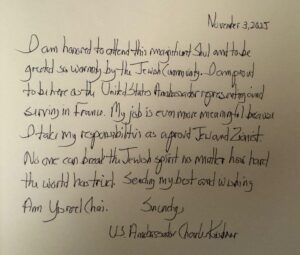 November 3, 2025
I am honored to attend this magnificent Shul and to be
greeted so warmly by the Jewish Community. I am proud
to be here as the United States Ambassador representing and
serving in France. My job is even more meaningful because
I take my responsibilities as a proud Jew and Zionist.
No one can break the Jewish spirit no matter how hard
the world has tried. Sending my best and wishing
Am Yisrael Chai. Sincerely,
U.S. Ambassador Charles Kushner